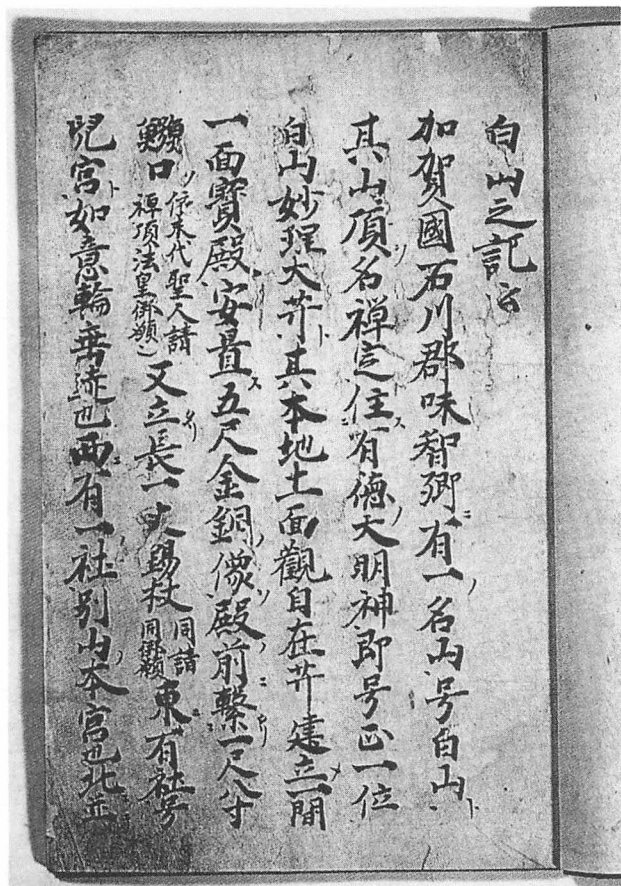 白山之記云
加賀國石川郡味智郷ニ有一ノ名山号白山ト
其山頂ノ名禅定ト住ス有徳ノ大明神即号正一位
白山妙理大井ト其本地十一面觀自在井建立一間
一面寳殿安置ス五尺金銅ノ像ヲ殿ノ前ニ繋一尺八寸
鰐口ヲ 依末代聖人請 禅頂法皇御願 又立長一丈錫杖 同請 同御願 東ニ有社号
児宮ト如意輪垂迹也西ニ有一社別山ノ本宮也北並